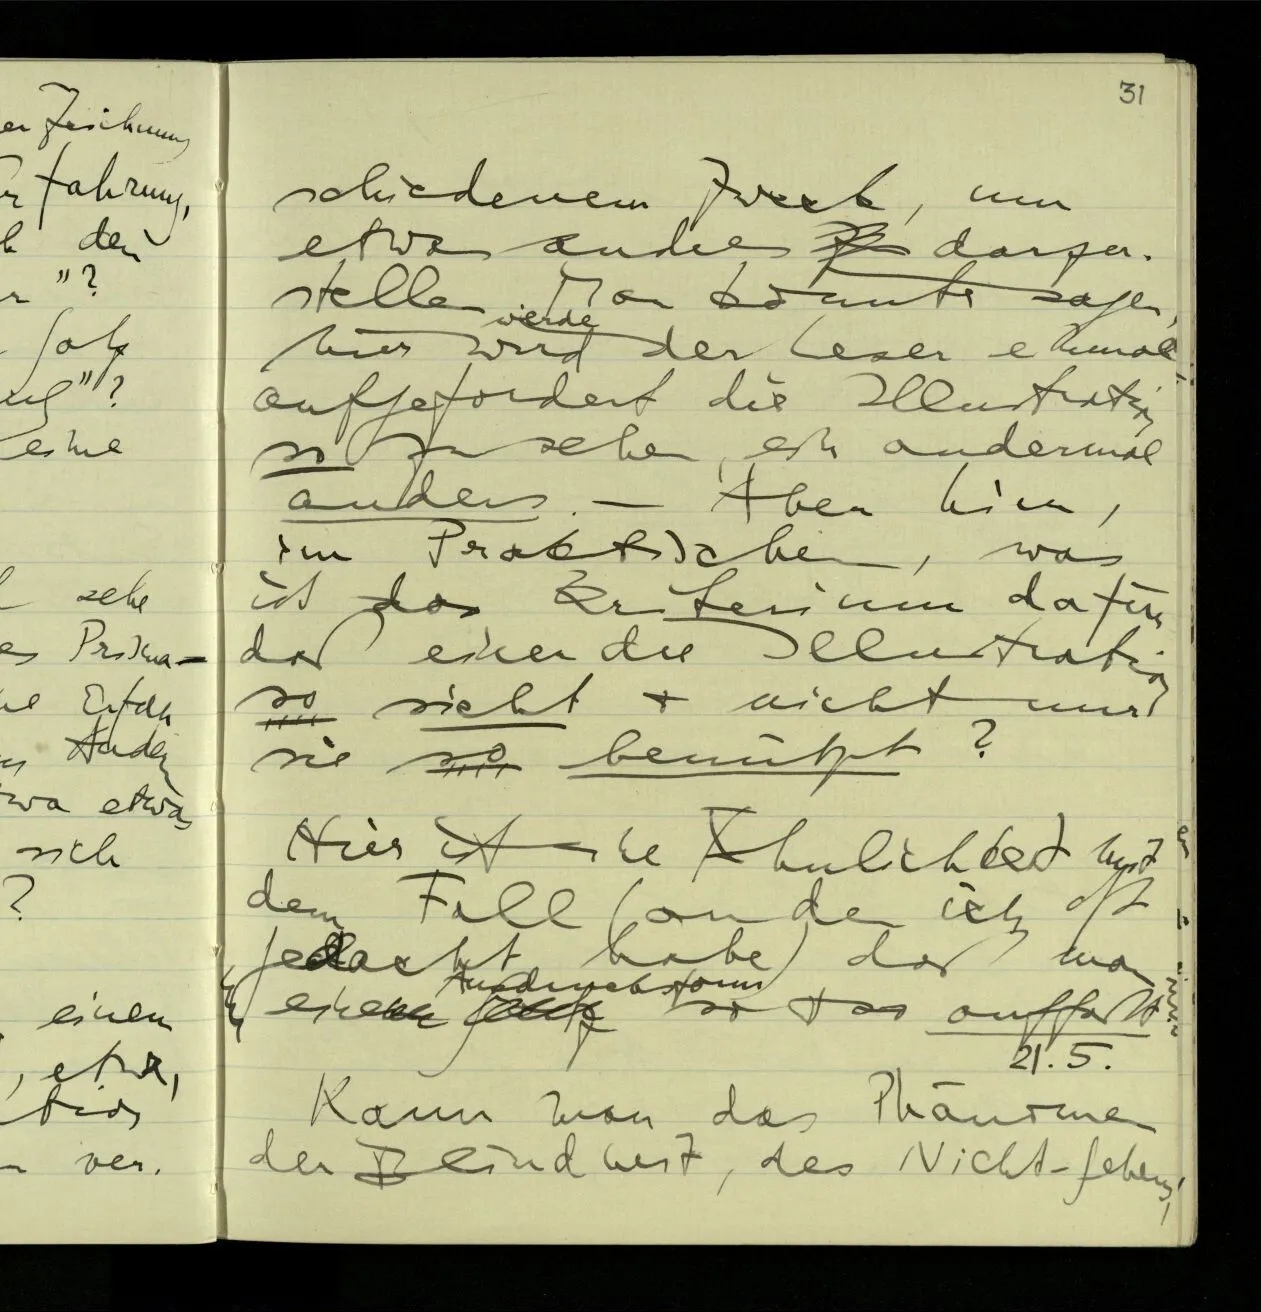 er Zeichnung
Erfahrung,
den
"?
Satz
ug"?
eine
sehe
es Prisma-
Ander
etwa etwas
sich
?
einen
, etwa,
ver-
31
schiedenem Zweck, um
etwas andres darzu-
stellen. Man könnte sagen,
werde
hier wird der Leser einmal
aufgefordert die Illustration
so zu sehen, ein andermal
anders. — Aber hier,
im Praktischen, was
ist das Kriterium dafür
daß einer die Illustration
so sieht + nicht nur
sie so benützt?
Hier ist eine Ähnlichkeit mit
dem Fall (an den ich oft
gedacht habe) daß man
Ausdrucksform
einen Satz so auffaßt
21.5.
Kann man das Phänomen
der Blindheit, des Nicht-Sehens,